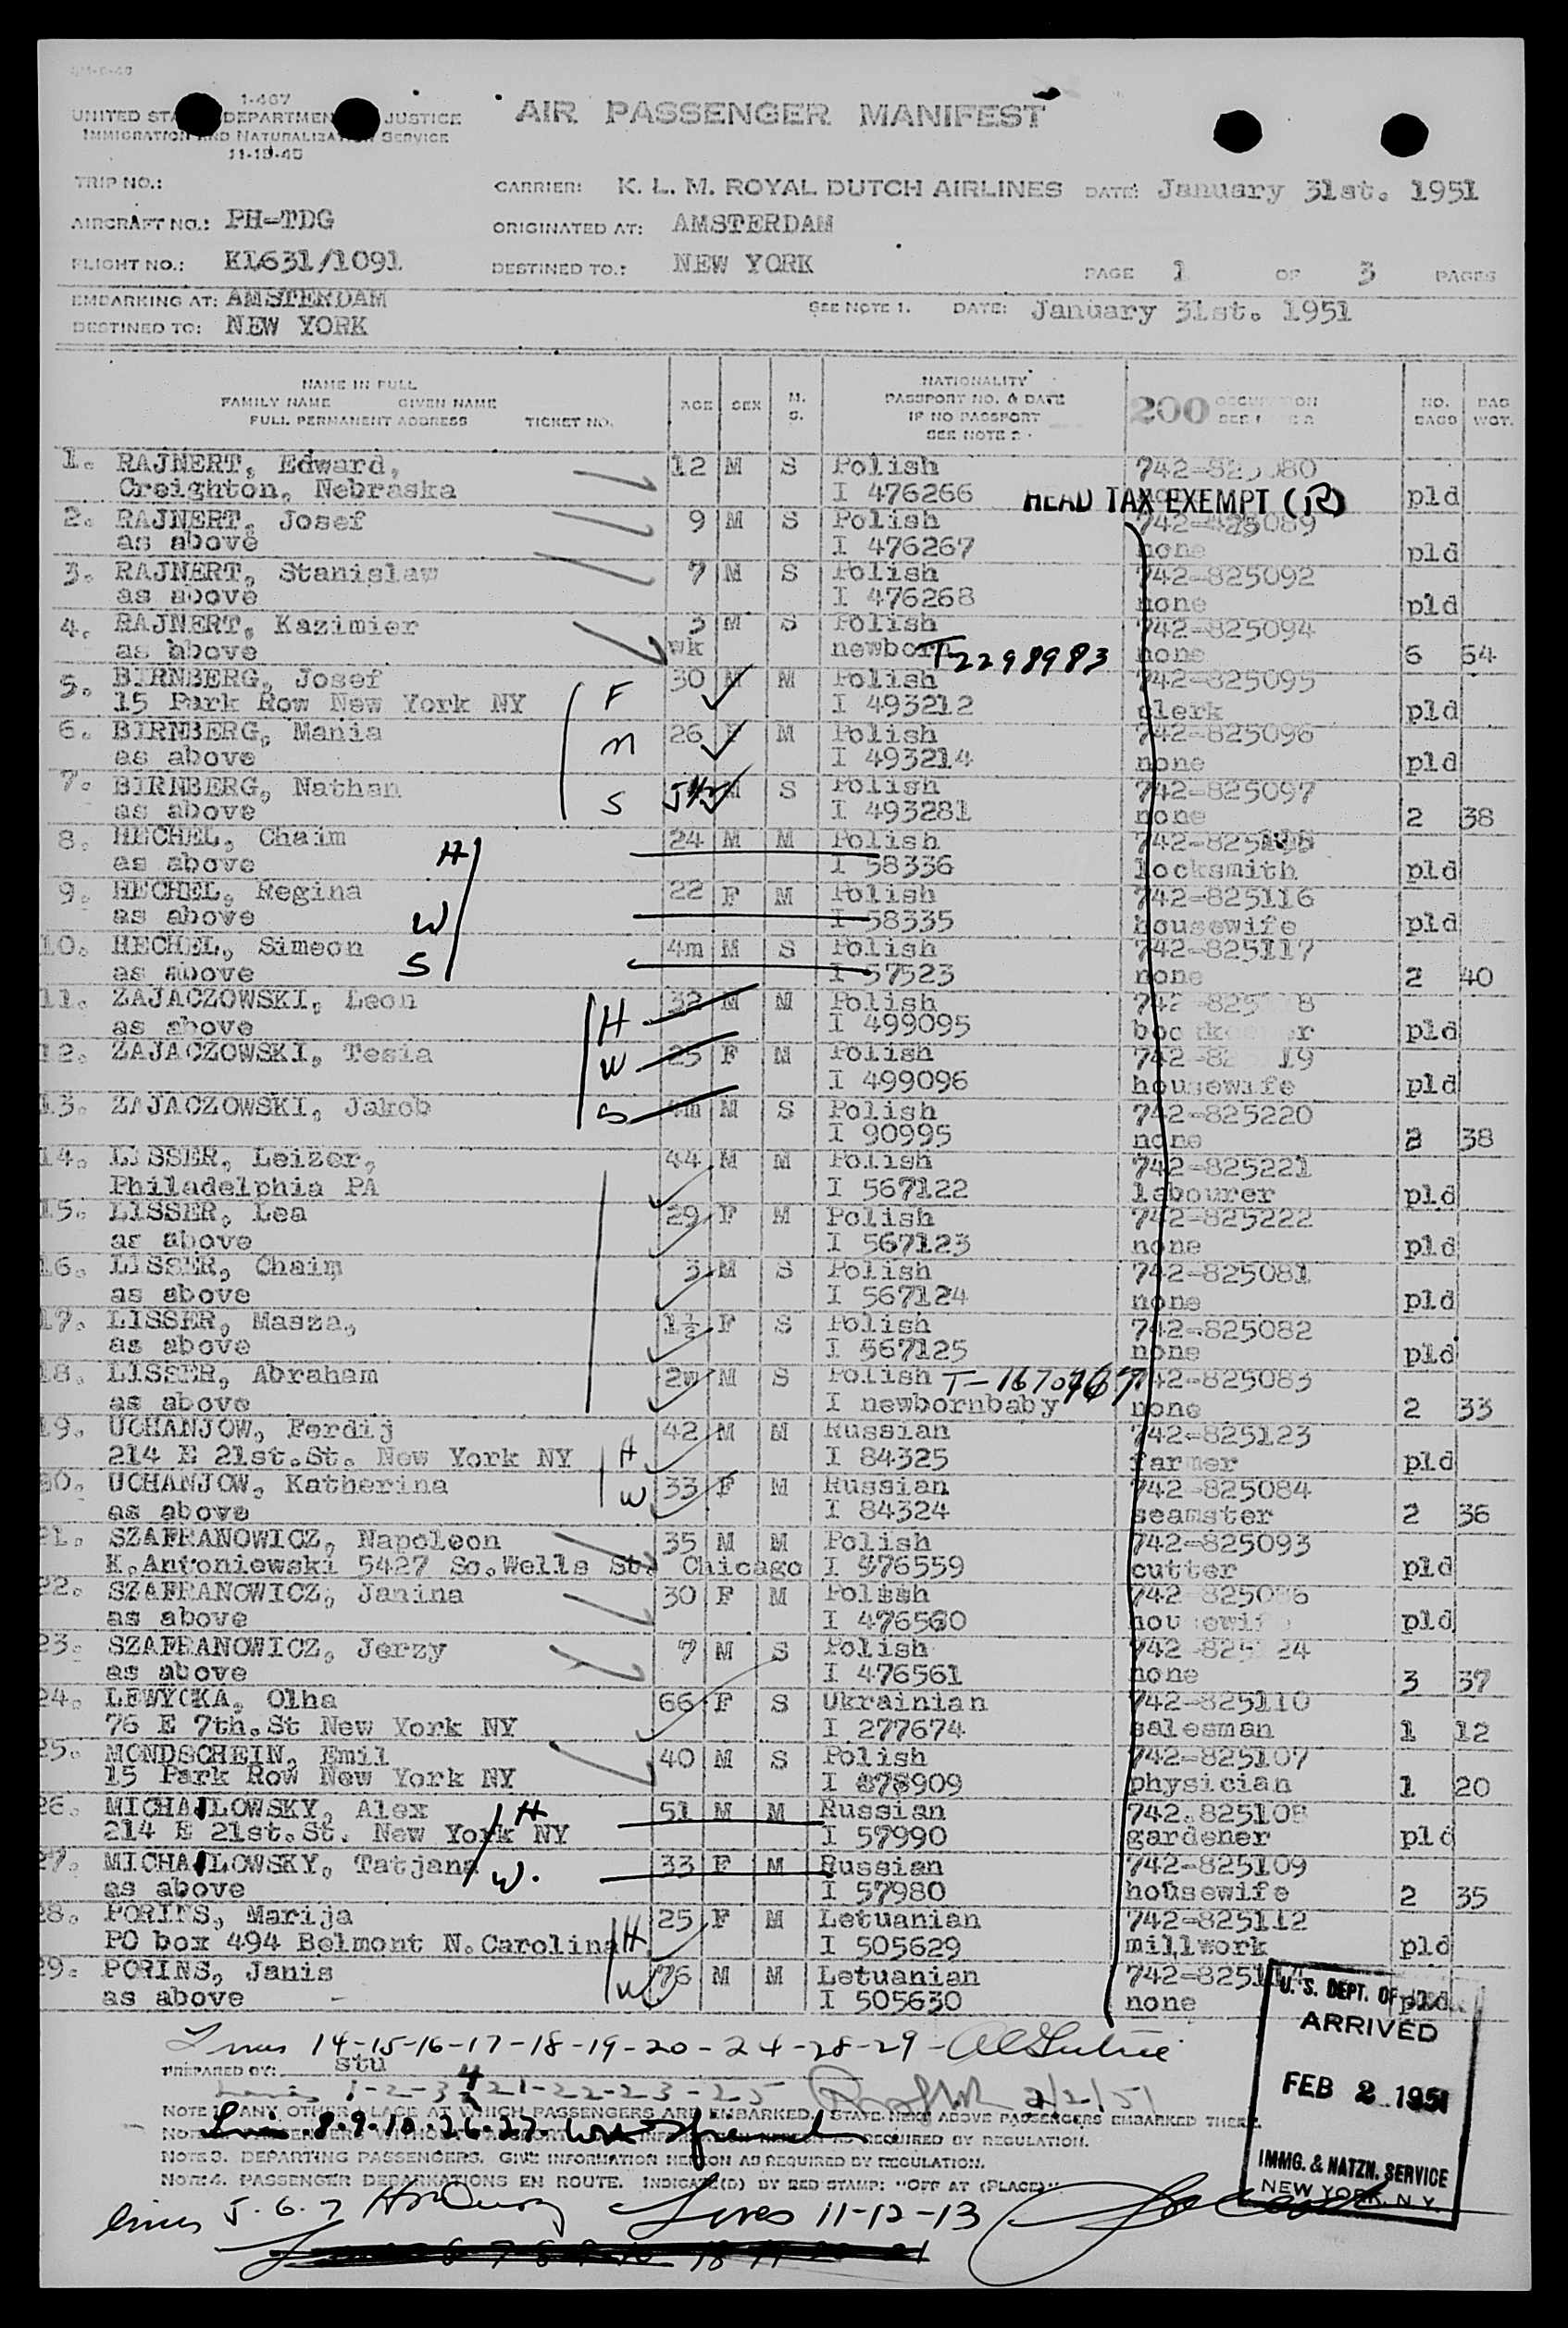 1-467
UNITED STA DEPARTMEN JUSTICE
IMMIGRATION AND NATURALIZATION SERVICE
11-19-45
AIR PASSENGER MANIFEST
TRIP NO.:
CARRIER: K. L. M. ROYAL DUTCH AIRLINES DATE: January 31st. 1951
AIRCRAFT NO.: PH-TDG
ORIGINATED AT: AMSTERDAM
FLIGHT NO.: KL631/1091
DESTINED TO.: NEW YORK
PAGE 1 OF 3 PAGES
EMBARKING AT: AMSTERDAM
SEE NOTE 1. DATE: January 31st. 1951
DESTINED TO: NEW YORK
NAME IN FULL
FAMILY NAME GIVEN NAME
FULL PERMANENT ADDRESS TICKET NO.
AGE SEX M. S.
NATIONALITY
PASSPORT NO. & DATE
IF NO PASSPORT
SEE NOTE 2
200
NO. BAGS
BAG WGT.
1. RAJNERT, Edward, 12 M S Polish
Creighton, Nebraska I 476266 pld
HEAD TAX EXEMPT (R)
2. RAJNERT, Josef 9 M S Polish
as above I 476267 none pld
3. RAJNERT, Stanislaw 7 M S Polish 742-825092
as above I 476268 none pld
4. RAJNERT, Kazimier 3 M S Polish 742-825094
as above wk newborn T-2298983 none 6 64
5. BIRNBERG, Josef F 30 M M Polish 742-825095
15 Park Row New York NY I 493212 clerk pld
6. BIRNBERG, Mania M 26 F M Polish 742-825096
as above I 493214 none pld
7. BIRNBERG, Nathan S M S Polish 742-825097
as above I 493281 none 2 38
8. HECHEL, Chaim H 24 M M Polish
as above I 58336 locksmith pld
9. HECHEL, Regina W 22 F M Polish 742-825116
as above I 58335 housewife pld
10. HECHEL, Simeon S 4m M S Polish 742-825117
as above I 57523 none 2 40
11. ZAJACZOWSKI, Leon H 32 M M Polish
as above I 499095 pld
12. ZAJACZOWSKI, Tesia W 25 F M Polish
I 499096 housewife pld
13. ZAJACZOWSKI, Jakob S 4m M S Polish 742-825220
I 90995 none 2 38
14. LISSER, Leizer, 44 M M Polish 742-825221
Philadelphia PA I 567122 labourer pld
15. LISSER, Lea 29 F M Polish 742-825222
as above I 567123 none pld
16. LISSER, Chaim 3 M S Polish 742-825081
as above I 567124 none pld
17. LISSER, Masza, 1½ F S Polish 742-825082
as above I 567125 none pld
18. LISSER, Abraham 2w M S Polish T-1670767 742-825083
as above I newbornbaby none 2 33
19. UCHANJOW, Ferdij H 42 M M Russian 742-825123
214 E 21st.St. New York NY I 84325 farmer pld
20. UCHANJOW, Katherina W 33 F M Russian 742-825084
as above I 84324 seamster 2 36
21. SZAFRANOWICZ, Napoleon 35 M M Polish 742-825093
K.Antoniewski 5427 So.Wells St. Chicago I 476559 cutter pld
22. SZAFRANOWICZ, Janina 30 F M Polish
as above I 476560 pld
23. SZAFRANOWICZ, Jerzy 7 M S Polish
as above I 476561 none 3 37
24. LEWYCKA, Olha 66 F S Ukrainian 742-825110
76 E 7th.St New York NY I 277674 salesman 1 12
25. MONDSCHEIN, Emil 40 M S Polish 742-825107
15 Park Row New York NY physician 1 20
26. MICHAJLOWSKY, Alex H 51 M M Russian
214 E 21st.St. New York NY I 57990 gardener pld
27. MICHAJLOWSKY, Tatjana W. 33 F M Russian 742-825109
as above I 57980 housewife 2 35
28. PORINS, Marija H 25 F M Letuanian 742-825112
PO box 494 Belmont N.Carolina I 505629 millwork pld
29. PORINS, Janis W 76 M M Letuanian
as above I 505630 none pld
Lines 14-15-16-17-18-19-20-24-28-29-
PREPARED BY: stu
Lines 1-2-3-4-21-22-23-25 2/2/51
NOTE 1. ANY OTHER PLACE AT WHICH PASSENGERS ARE EMBARKED, STATE NEXT ABOVE PASSENGERS EMBARKED THERE.
Lines 8.9.10.26.27.
AS REQUIRED BY REGULATION.
NOTE 3. DEPARTING PASSENGERS. GIVE INFORMATION HEREON AS REQUIRED BY REGULATION.
NOTE 4. PASSENGER DEBARKATIONS EN ROUTE. INDICATE(D) BY RED STAMP: "OFF AT (PLACE)".
lines 5.6.7 Lines 11-12-13
U. S. DEPT. OF
ARRIVED
FEB 2 1951
IMMG. & NATZN. SERVICE
NEW YORK, N.Y.